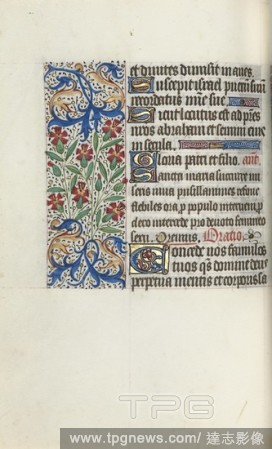 et diuites dimisit inanes.
Suscepit israel puerum suum
recordatus mie sue
Sicut locutus est ad pres
nros abraham et semini eius
in secula.
Gloria patri et filio. ant.
Sancta maria succurre mi
seris iuua pusillanimes refoue
flebiles ora p populo interueni p
clero intercede pro deuoto femineo
sexu. Oremus. Oratio.
Concede nos famulos
tuos qs domine deus
perpetua mentis et corporis sa
TPG
www.tpgnews.com / 達志影像